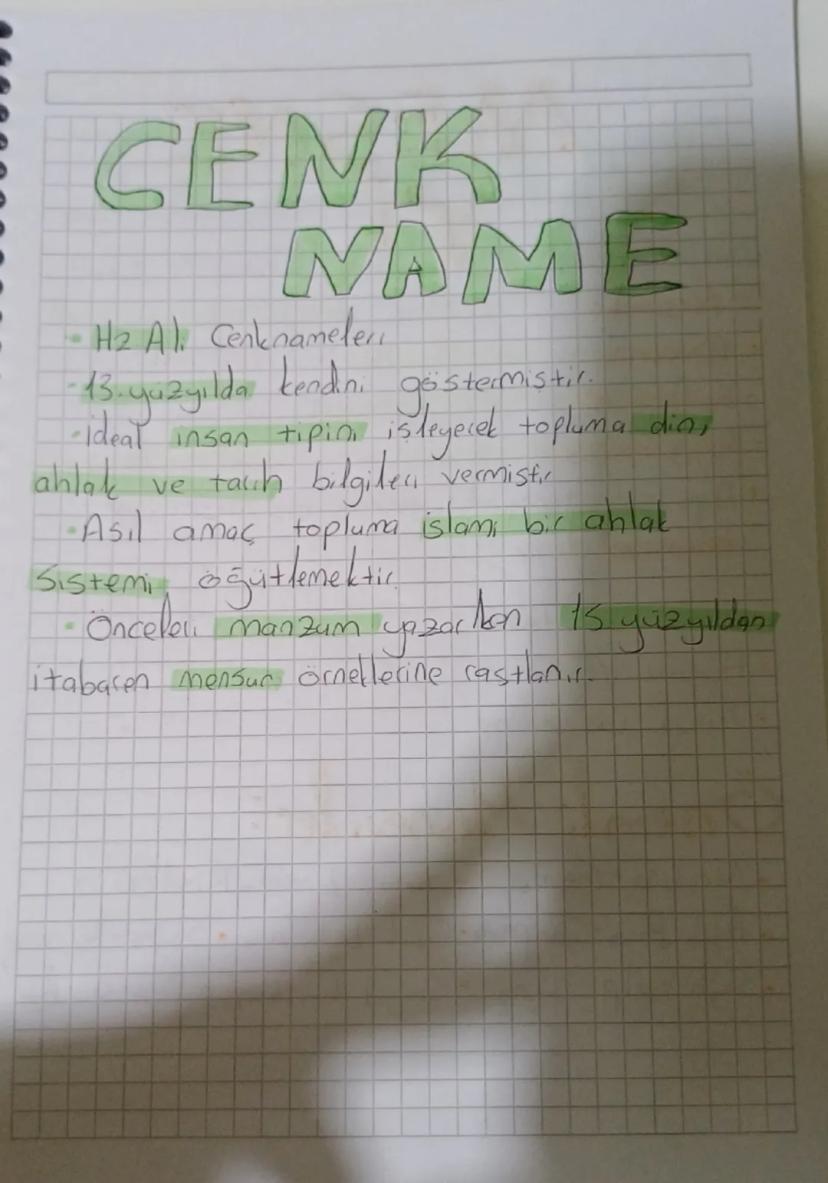 CENK
NAME
• Hz Ali Cenknameleri
• 13. yüzyılda kendini göstermiştir.
• İdeal insan tipini işleyerek topluma dini,
ahlak ve tarih bilgileri vermiştir
• Asıl amaç topluma islami bir ahlak
sistemi öğütlemektir.
• Önceleri manzum yazarken 15 yüzyıldan
itabaren mensur örneklerine rastlanır.